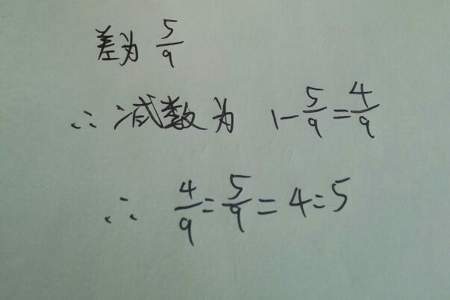 差为 5/9
∴ 减数为 1-5/9=4/9
∴ 4/9=5/9=4=5